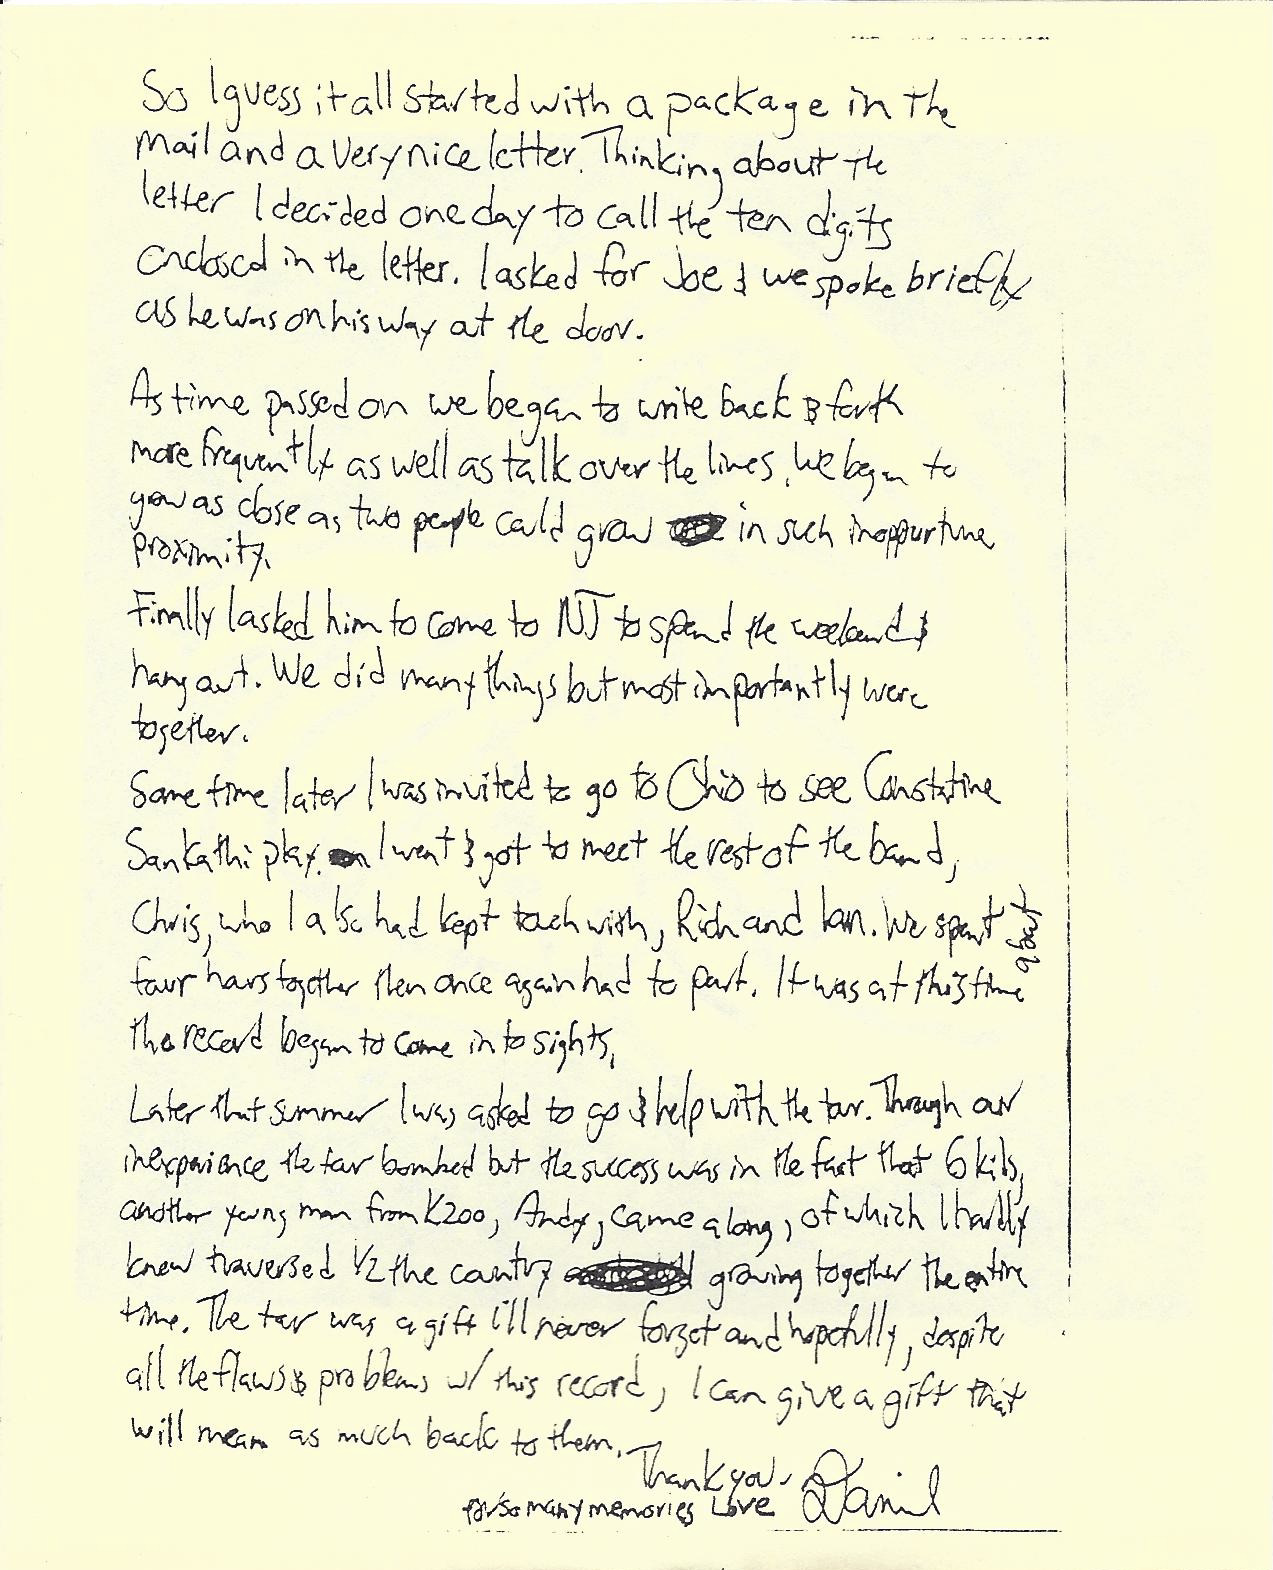 So I guess it all started with a package in the
mail and a very nice letter. Thinking about the
letter I decided one day to call the ten digits
enclosed in the letter. I asked for Joe & we spoke briefly
as he was on his way at the door.
As time passed on we began to write back & forth
more frequently as well as talk over the lines. We began to
grow as close as two people could grow in such inoppurtune
proximity.
Finally I asked him to come to NJ to spend the weekend &
hang out. We did many things but most importantly were
together.
Some time later I was invited to go to Ohio to see Constatine
Sankathi play. I went & got to meet the rest of the band,
Chris, who I also had kept touch with, Rich and Ian. We spent about
four hours together then once again had to part. It was at this time
the record began to come into sights.
Later that summer I was asked to go & help with the tour. Through our
inexperience the tour bombed but the success was in the fact that 6 kids,
another young man from Kzoo, Andy, came along, of which I hardly
knew traversed 1/2 the country growing together the entire
time. The tour was a gift I'll never forget and hopefully, despite
all the flaws & problems w/ this record, I can give a gift that
will mean as much back to them.
Thank you.
for so many memories Love Daniel